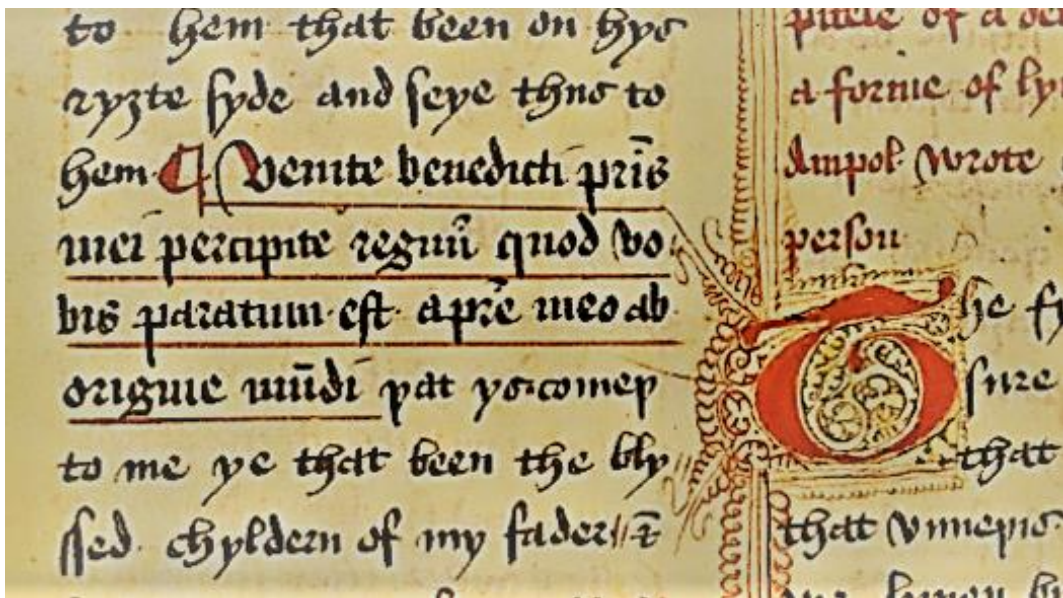 to hem that been on hys
ryȝte syde and seye thus to
hem. ¶ Venite benedicti pr̄is
mei percipite regnū quod vo
bis paratum est apr̄e meo ab
origine mūdi þat ys comeþ
to me ye that been the bly
ssed chyldern of my fader
a forme of ly
Ampol wrote
person
The fy
sure
that
that vnneþis